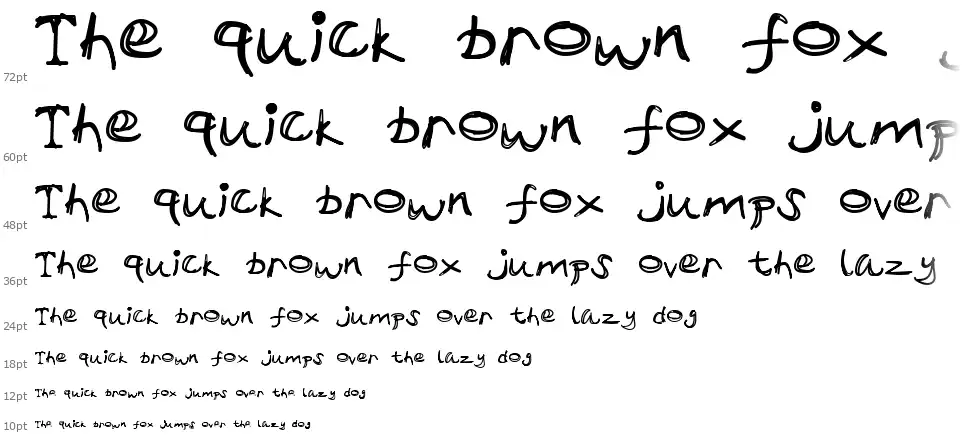 The quick brown fox
72pt
The quick brown fox jump
60pt
The quick brown fox jumps over
48pt
The quick brown fox jumps over the lazy
36pt
The quick brown fox jumps over the lazy dog
24pt
The quick brown fox jumps over the lazy dog
18pt
The quick brown fox jumps over the lazy dog
12pt
The quick brown fox jumps over the lazy dog
10pt